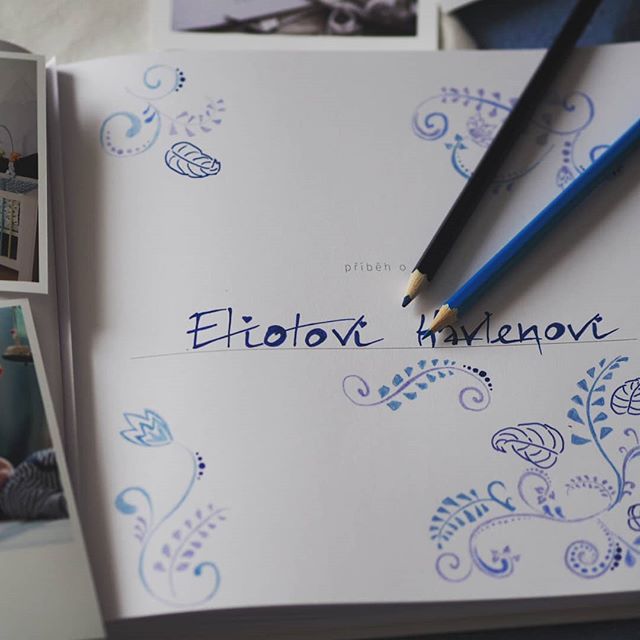 příběh o
Eliotovi Kavlenovi